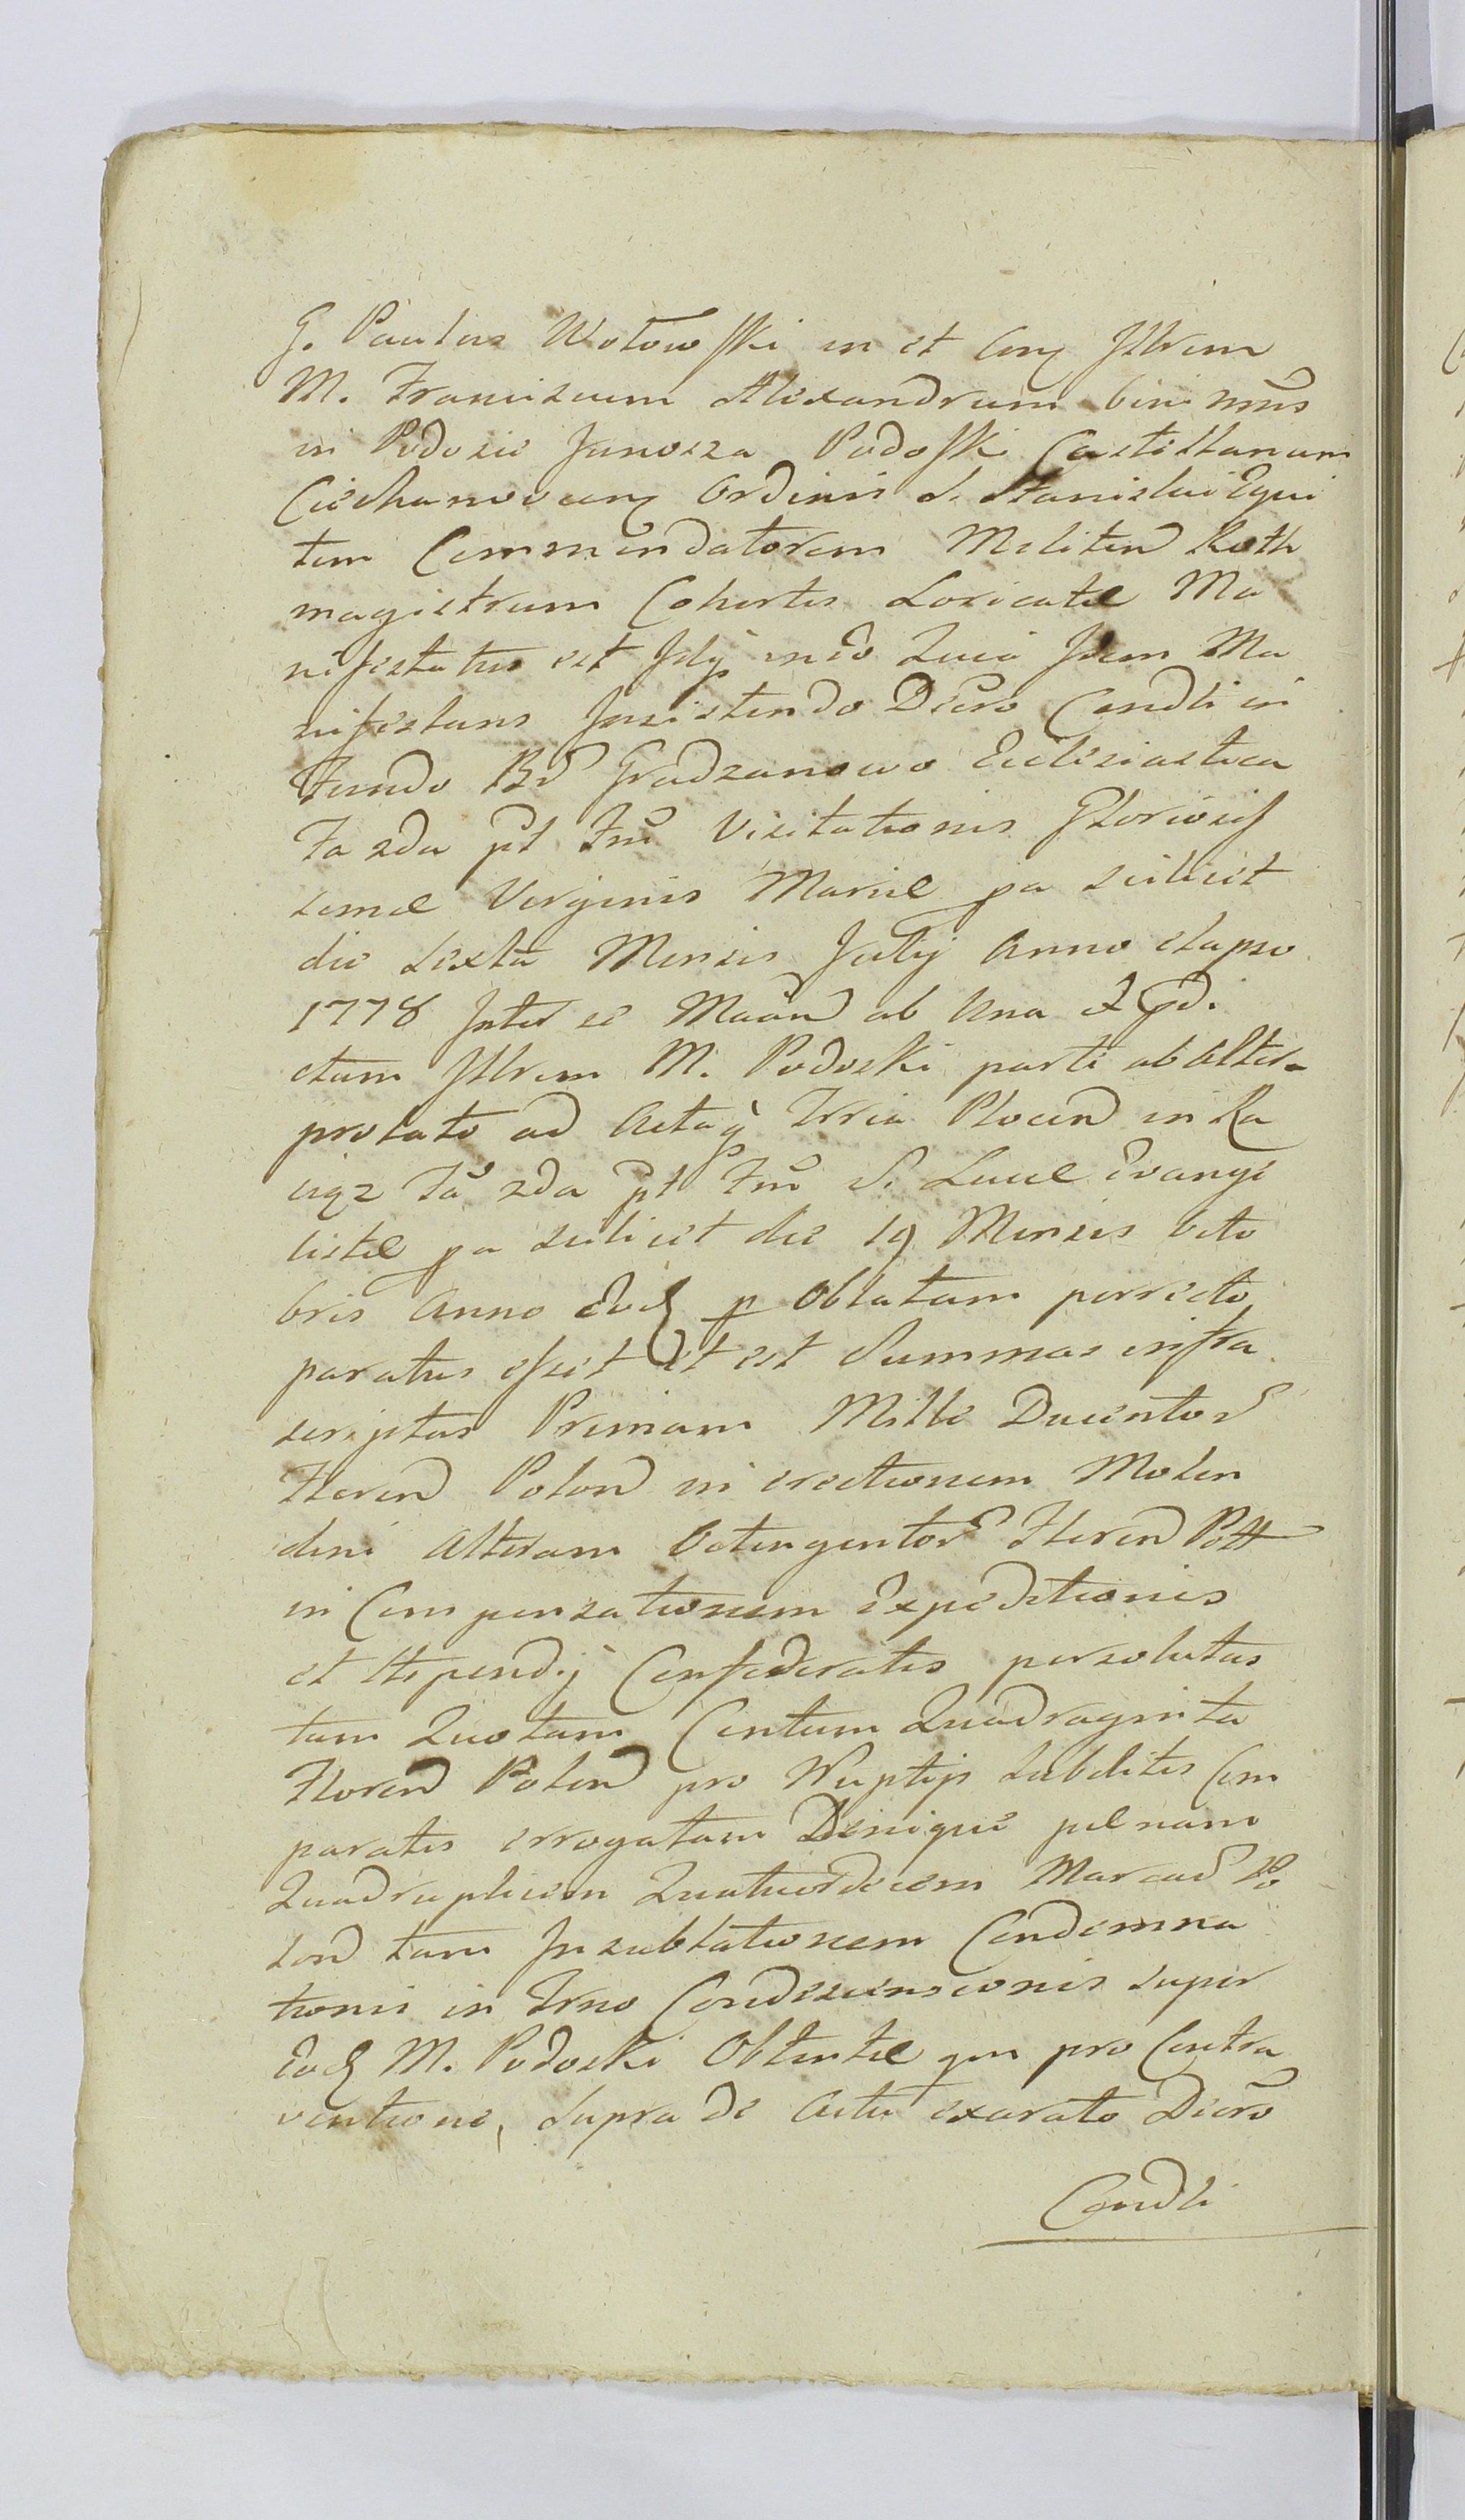 G. Paulus Wołowski in et Cong Illrem
M. Franciscum Alexandrum bini nnis
in Podosie Junosza Podoski Castellanum
Ciechanovieng Ordinis S. Stanislai Equi
tem Commendatorem Militud Roth
magistrum Cohortis Loricatæ Ma
nifestatus est Idq in eo Quia Idem Ma
nifestans Insistendo Decro Condli in
Fundo Bd Gradzanowo Ecclesiastica
Fa 2da pt Fm Visitationis Gloriosis
simæ Virginis Mariæ pa scilicet
die Sexta Mensis July Anno elapso
1778 Inter se Maan ab Una et pdi
ctum Illrem M. Podoski parte ab altera
prolato ad Actaq Trria Plocen in Ra
ciąz Fa 2da pt Fm S. Lucæ Evange
listæ pa scilicet die 19 Mensis Octo
bris Anno Eod p Oblatam porrecto
paratus esset et est Summas infra
scriptas Primam Mille Ducentor
Floren Polon in erectionem Molen
dini Alteram Octingentor Floren Poll
in Compensationem Expeditionis
et stipendij Confederatis persolutas
tum Quotam Centum Quadraginta
Floren Polon pro Nuptijs Subditis Com
paratis errogatam Denique pænam
Quadruplicem Quatuordecem Marcar Po
lon tam In sublationem Condemna
tionis in Trno Condescensionis super
Eod M. Podoski Obtentæ qm pro Contra
ventione, Supra de Actu exarato Decro
Condli